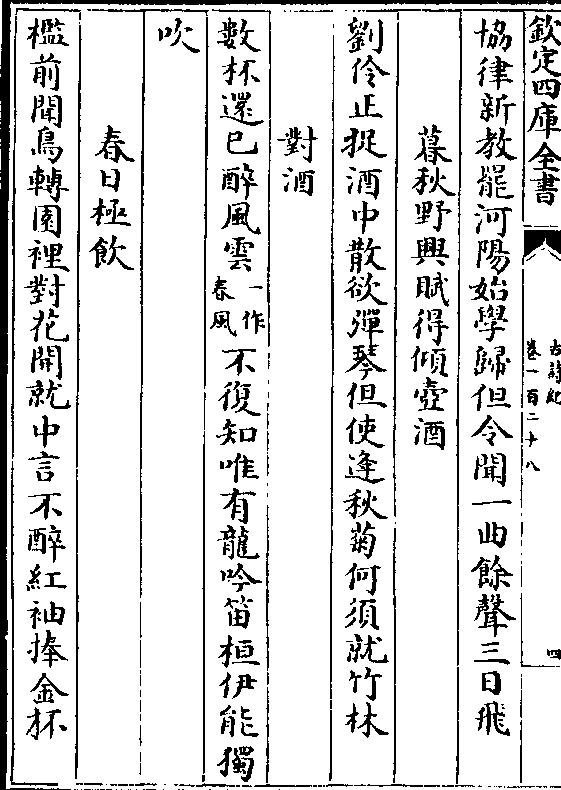 欽定四庫全書
古詩紀
卷一百二十八
四
協律新教罷河陽始學歸但令聞一曲餘聲三日飛
暮秋野興賦得傾壺酒
劉伶正捉酒中散欲彈琴但使逢秋菊何須就竹林
對酒
數杯還已醉風雲一作春風不復知唯有龍吟笛桓伊能獨
吹
春日極飲
檻前聞鳥轉園裡對花開就中言不醉紅袖捧金杯